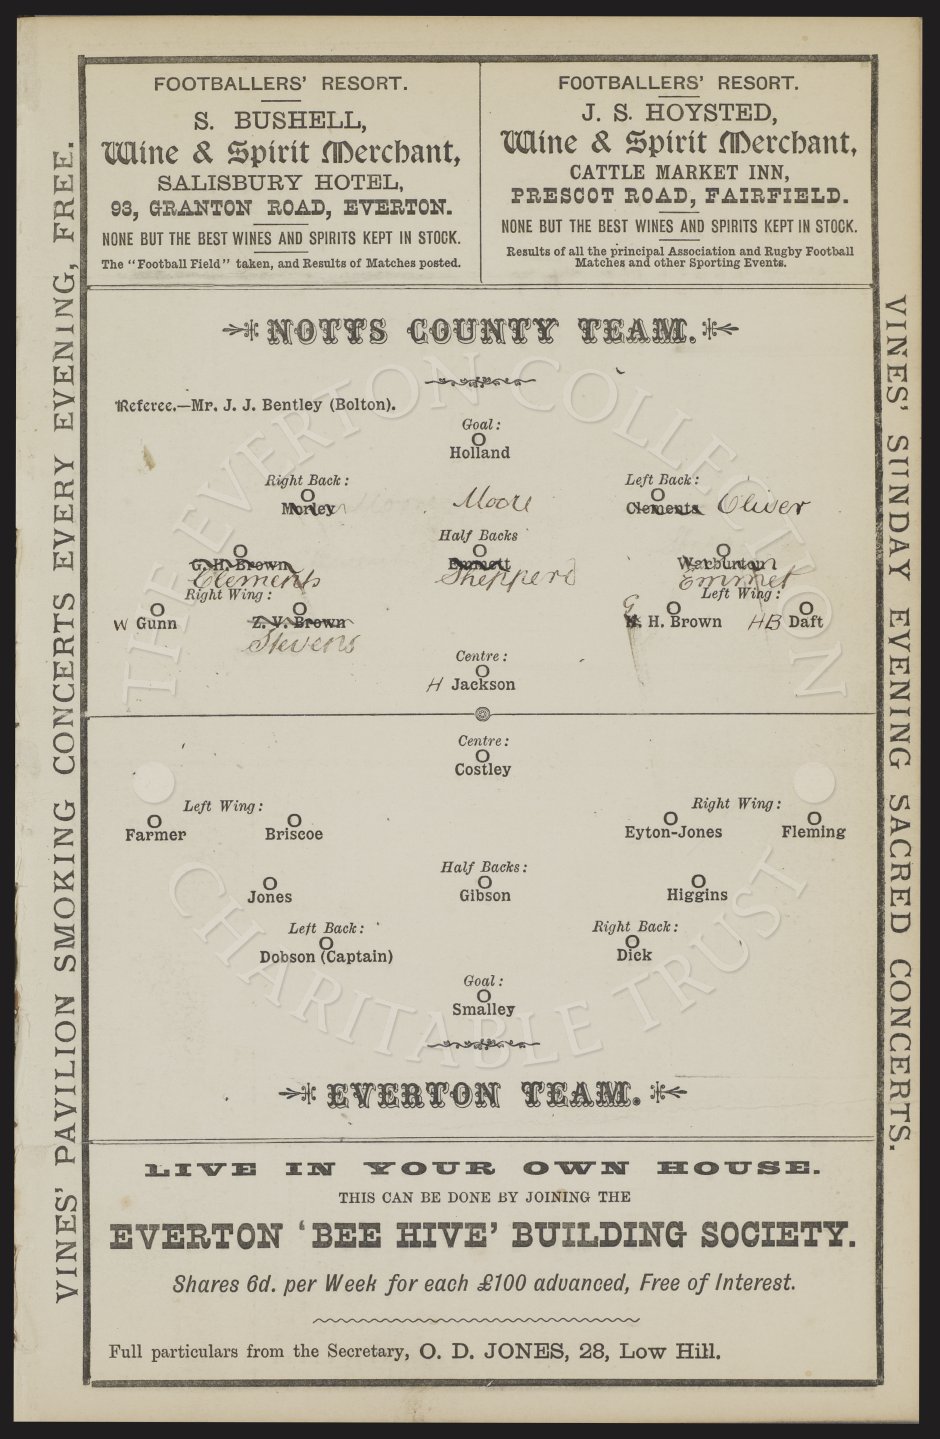 FOOTBALLERS' RESORT.
S. BUSHELL,
Wine & Spirit Merchant,
SALISBURY HOTEL,
93, GRANTON ROAD, EVERTON.
NONE BUT THE BEST WINES AND SPIRITS KEPT IN STOCK.
The "Football Field" taken, and Results of Matches posted.
FOOTBALLERS' RESORT.
J. S. HOYSTED,
Wine & Spirit Merchant,
CATTLE MARKET INN,
PRESCOT ROAD, FAIRFIELD.
NONE BUT THE BEST WINES AND SPIRITS KEPT IN STOCK.
Results of all the principal Association and Rugby Football
Matches and other Sporting Events.
VINES' PAVILION SMOKING CONCERTS EVERY EVENING, FREE.
VINES' SUNDAY EVENING SACRED CONCERTS.
NOTTS COUNTY TEAM.
Referee.—Mr. J. J. Bentley (Bolton).
Goal:
Holland
Right Back: Left Back:
Morley Moore Clements Oliver
Half Backs
G. H. Brown Emmett Warburton
Clements Shepperd Emmet
Right Wing: Left Wing:
W Gunn Z. V. Brown G H. H. Brown HB Daft
Stevens
Centre:
H Jackson
Centre:
Costley
Left Wing: Right Wing:
Farmer Briscoe Eyton-Jones Fleming
Half Backs:
Jones Gibson Higgins
Left Back: Right Back:
Dobson (Captain) Dick
Goal:
Smalley
EVERTON TEAM.
LIVE IN YOUR OWN HOUSE.
THIS CAN BE DONE BY JOINING THE
EVERTON 'BEE HIVE' BUILDING SOCIETY.
Shares 6d. per Week for each £100 advanced, Free of Interest.
Full particulars from the Secretary, O. D. JONES, 28, Low Hill.
THE EVERTON COLLECTION
CHARITABLE TRUST